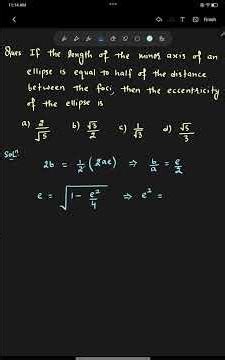 11:14 AM
Finish
Ques: If the length of the minor axis of an
ellipse is equal to half of the distance
between the foci, then the eccentricity
of the ellipse is
a) 2/√5 b) √3/2 c) 1/√3 d) √5/3
Solⁿ
2b = 1/2 (2ae) ⇒ b/a = e/2
e = √(1 - e²/4) ⇒ e² =